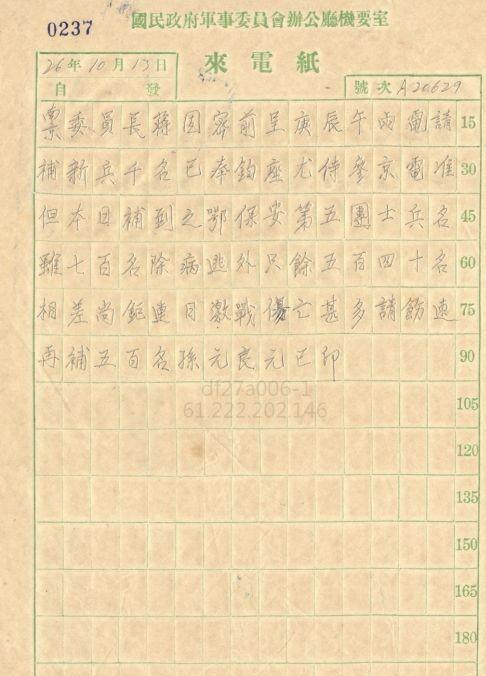 0237
國民政府軍事委員會辦公廳機要室
來電紙
26年10月13日
自 發
號次 A20629
稟委員長蔣固密前呈庚辰午兩電請 15
補新兵千名已奉鈞座尤侍參京電准 30
但本日補到之鄂保安第五團士兵名 45
雖七百名除病逃外只餘五百四十名 60
相差尚鉅連日激戰傷亡甚多請飭速 75
再補五百名孫元良元已印 90
df27a006-1
61.222.202.146
105
120
135
150
165
180